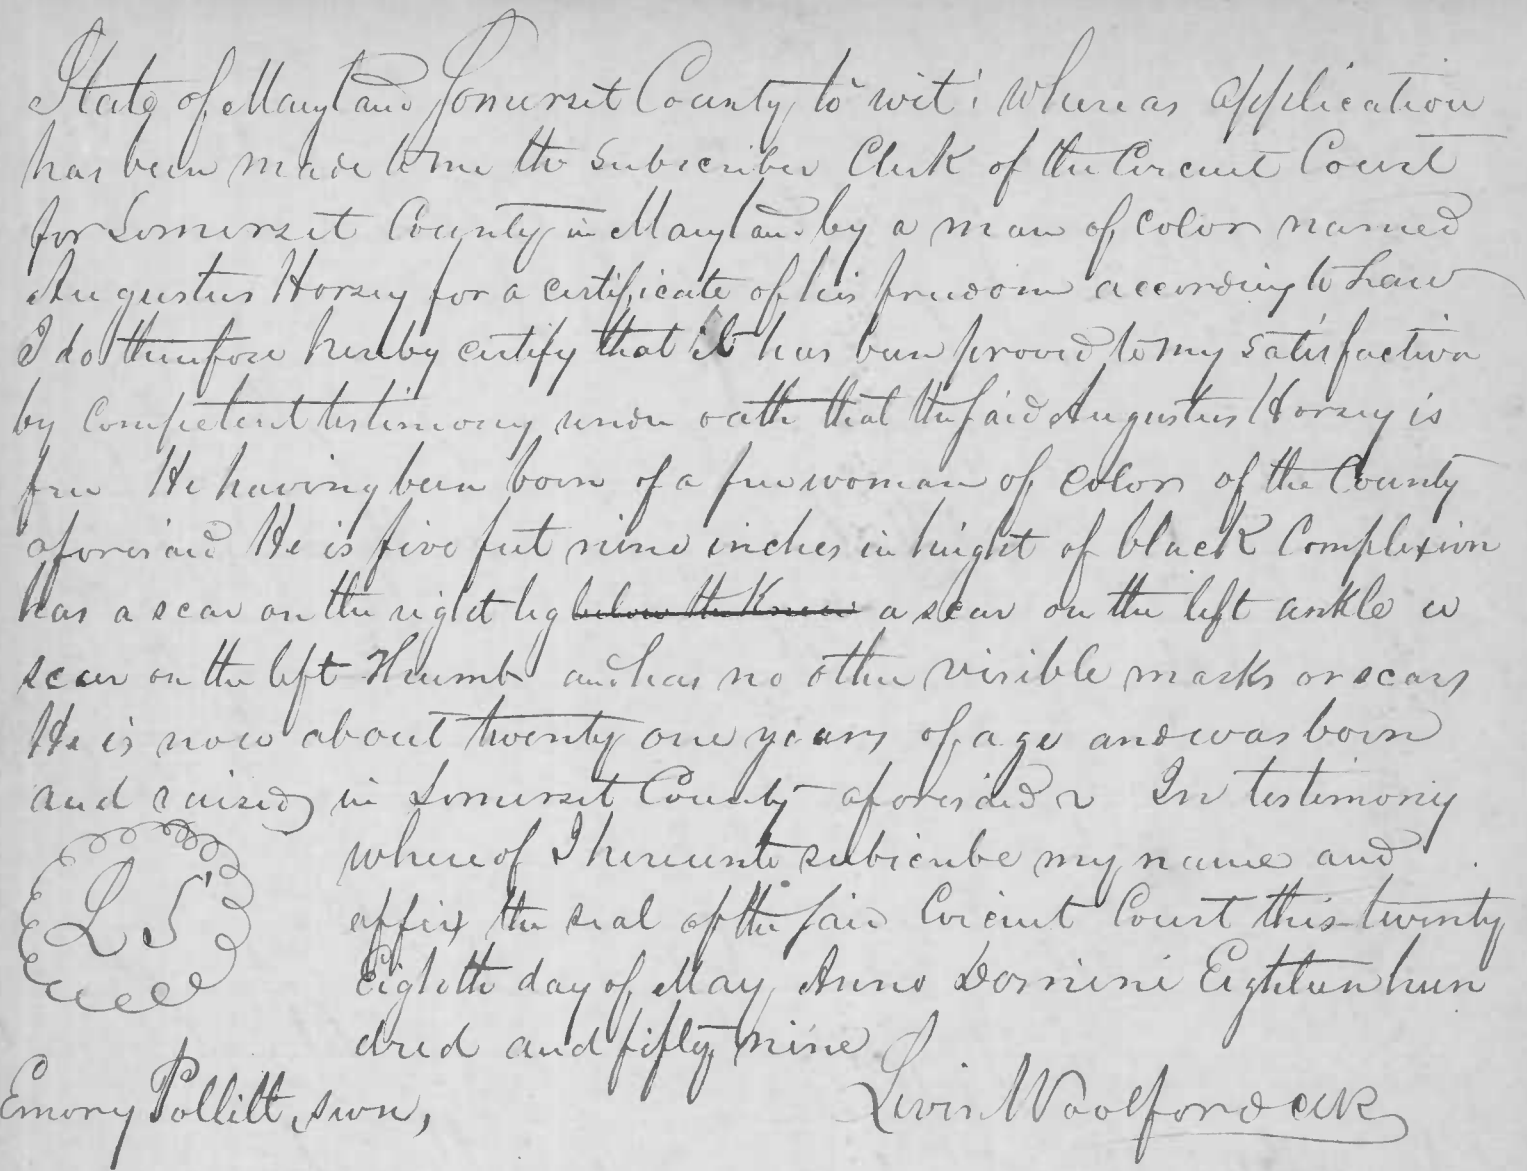 State of Maryland Somerset County, to wit: Whereas application
has been made to me the Subscriber Clerk of the Circuit Court
for Somerset County in Maryland by a man of color named
Augustus Horsey for a certificate of his freedom according to Law
I do therefore hereby certify that it has been proved to my satisfaction
by Competent testimony under oath that the said Augustus Horsey is
free He having been born of a free woman of color of the County
aforesaid He is five feet nine inches in hieght of black Complexion
has a scar on the right leg below the Knee a scar on the left ankle a
scar on the left Thumb and has no other visible marks or scars
He is now about twenty one years of age and was born
and raised in Somerset County aforesaid In testimony
whereof I hereunto subscribe my name and
affix the seal of the said Circuit Court this twenty
Eighth day of May Anno Domini Eighteen hun
dred and fifty nine
L S
Levin Woolford clk
Emory Pollitt, swn,